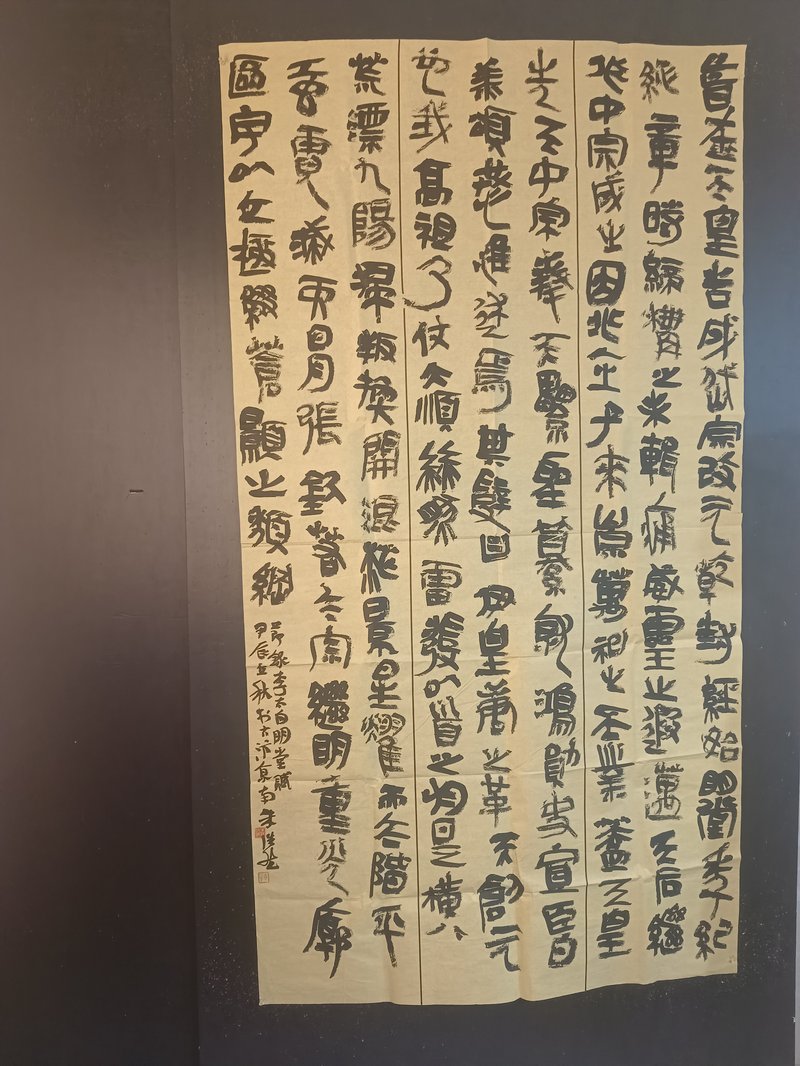 昔在天皇告成岱宗改元乾封經始明堂年紀
緫章時締構之未輯痛威靈之遐邁天后繼
作中宗成之因兆人之子來崇萬祖之丕業蓋天皇
先天中宗奉天累聖纂就鴻勛克宣臣白
美頌恭惟述焉其辭曰伊皇唐之革天創元
也我高祖乃仗大順赫然雷發以首之於是橫八
荒漂九陽掃叛換開混茫景星耀而太階平
虹霓滅而日月張欽若太宗繼明重光廓
區宇以立極綴蒼顥之頹綱
節錄李太白明堂賦
甲辰立秋於古汴京南